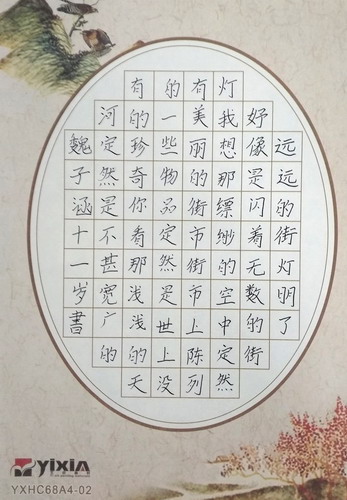 远远的街灯明了
好像是闪着无数的街
灯我想那缥缈的空中定然
有美丽的街市街市上陈列
的一些物品定然是世上没
有的珍奇你看那浅浅的天
河定然是不甚宽广的
魏子涵十一岁書
yixin
YXHC68A4-02